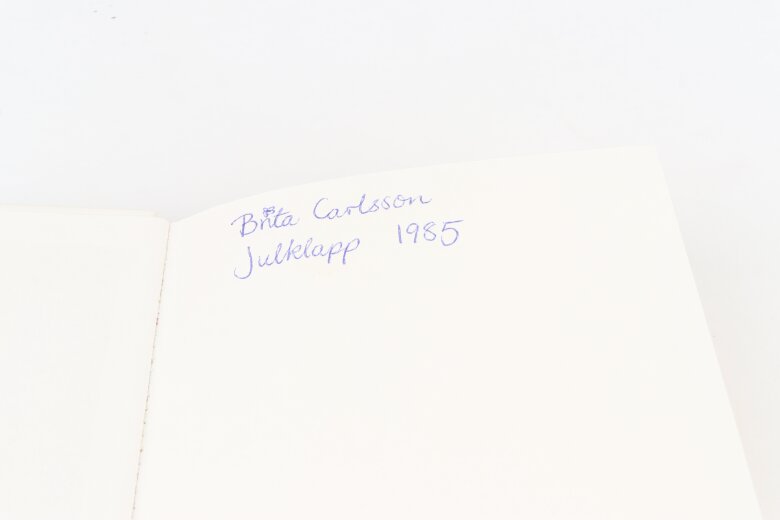 Brita Carlsson
Julklapp 1985